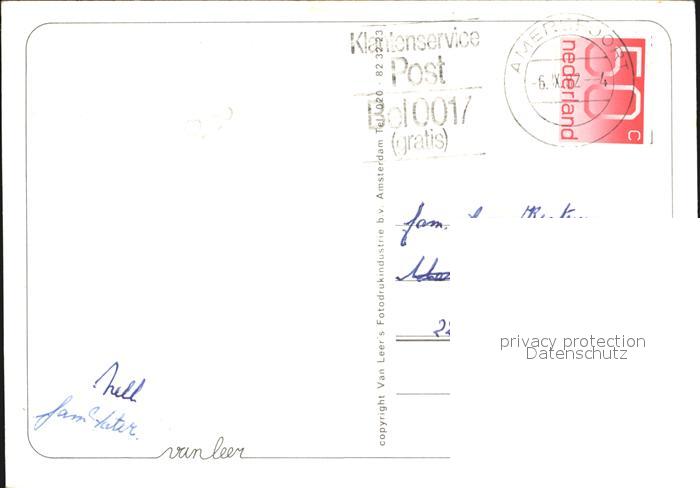 Klantenservice
Post
Bel 0017
(gratis)
AMERSFOORT
-6.IX. 2 - 4
50 c
nederland
copyright Van Leer's Fotodrukindustrie b.v. Amsterdam Tel. 020 - 82 32 23
fam.
22
privacy protection
Datenschutz
fam.
van leer